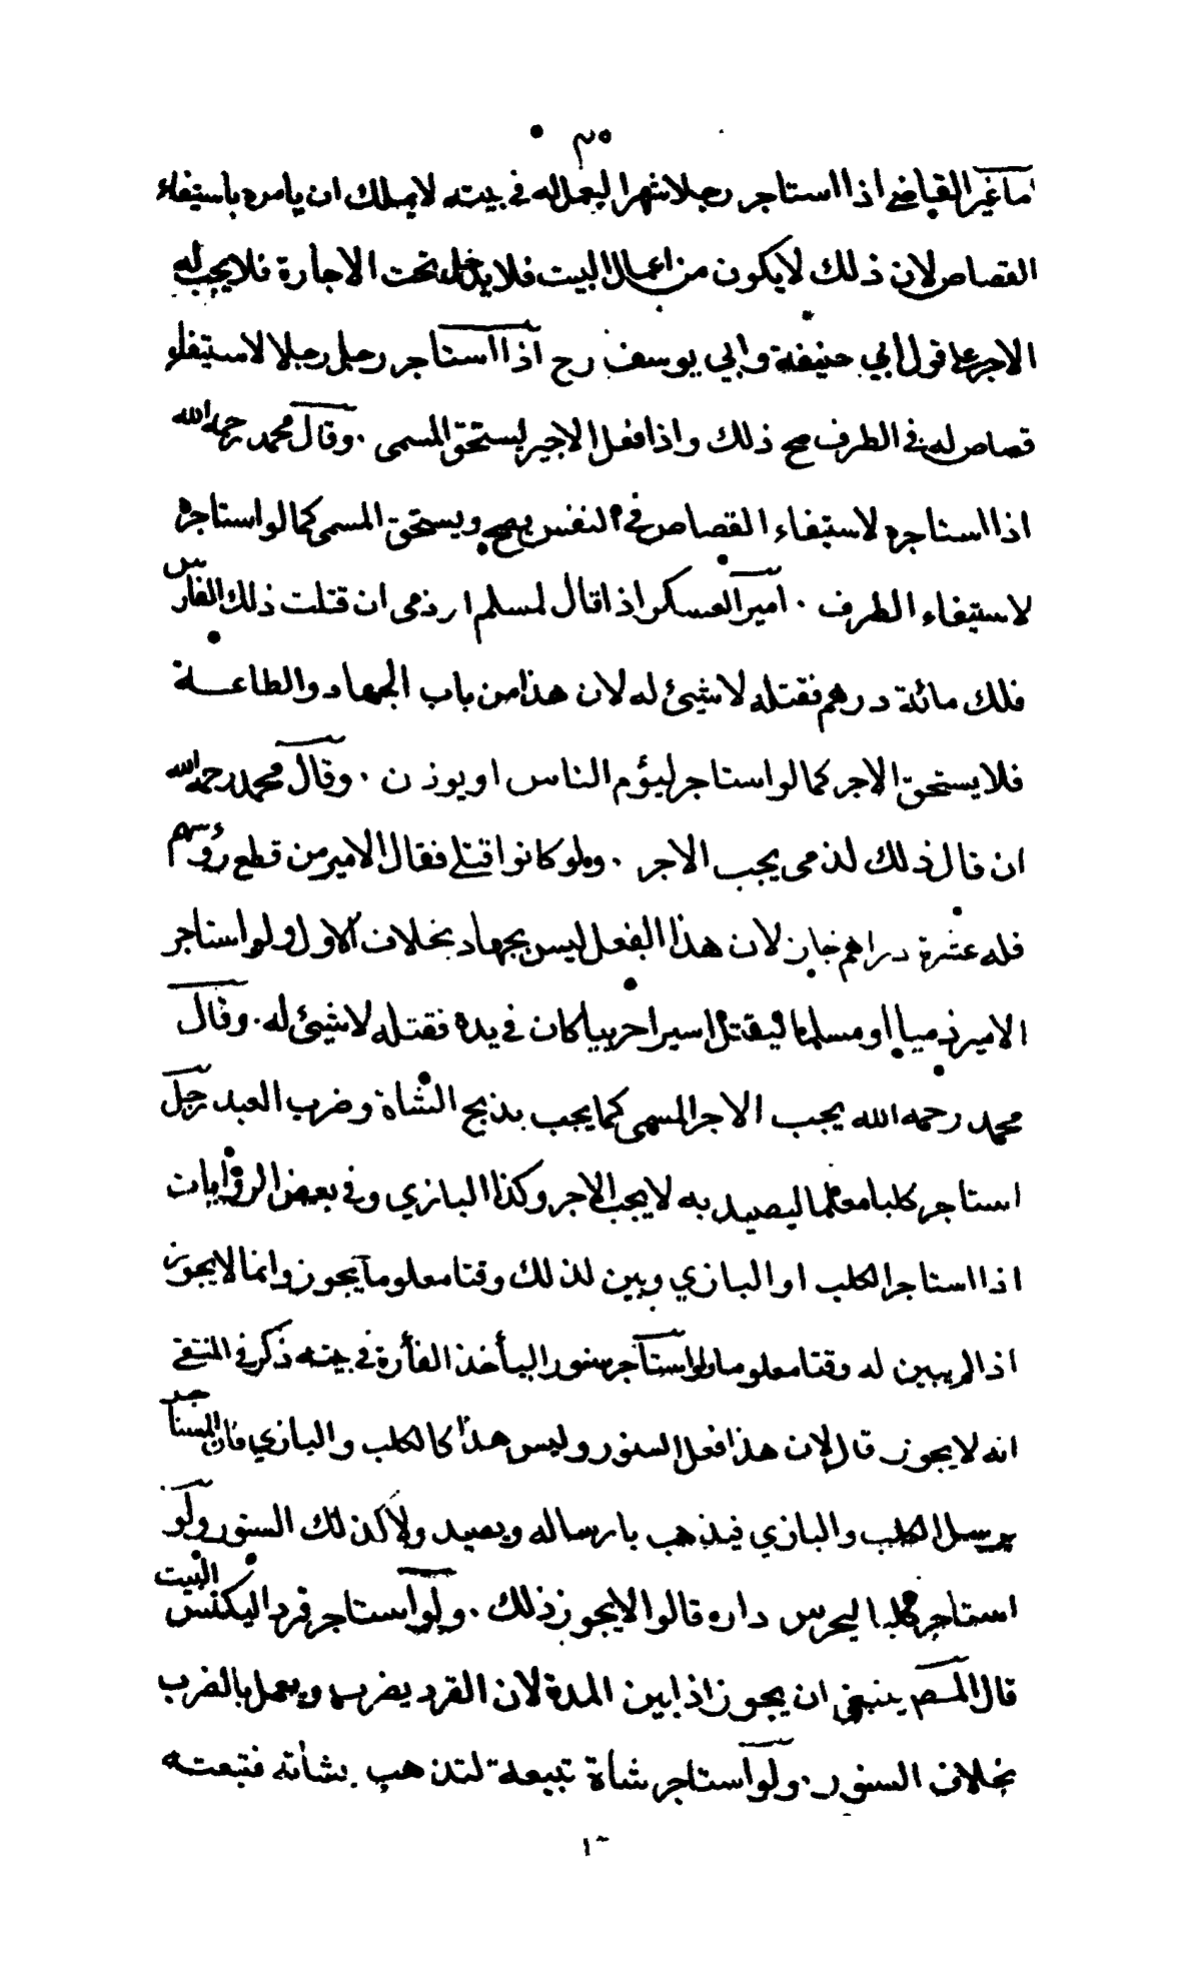 ٣٥
اما غير القاضي اذا استاجر رجلا شهرا ليعمل له في بيته لا يملك ان يامره باستيفاء
القصاص لان ذلك لا يكون من اعمال البيت فلا يدخل تحت الاجارة فلا يجب له
الاجر على قول ابي حنيفة وابي يوسف رح اذا استاجر رجل رجلا لاستيفاء
قصاص له في الطرف صح ذلك واذا فعل الاجير يستحق المسمى ٠ وقال محمد رحمه الله
اذا استاجره لاستيفاء القصاص في النفس يصح ويستحق المسمى كما لو استاجره
لاستيفاء الطرف ٠ امير العسكر اذا قال لمسلم او ذمي ان قتلت ذلك الفارس
فلك مائة درهم فقتله لا شيئ له لان هذا من باب الجهاد والطاعة
فلا يستحق الاجر كما لو استاجر ليؤم الناس او يوذن ٠ وقال محمد رحمه الله
ان قال ذلك لذمي يجب الاجر ٠ ولو كانوا قتلى فقال الامير من قطع رؤسهم
فله عشرة دراهم جاز لان هذا الفعل ليس بجهاد بخلاف الاول ولو استاجر
الامير ذميا او مسلما ليقتل اسيرا حربيا كان في يده فقتله لا شيئ له ٠ وقال
محمد رحمه الله يجب الاجر المسمى كما يجب بذبح الشاة وضرب العبد رجل
استاجر كلبا معلما ليصيد به لا يجب الاجر وكذا البازي وفي بعض الروايات
اذا استاجر الكلب او البازي وبين لذلك وقتا معلوما يجوز وانما لا يجوز
اذا لم يبين له وقتا معلوما ولو استاجر سنورا ليأخذ الفأرة في بيته ذكر في المنتقى
انه لا يجوز قال لان هذا فعل السنور وليس هذا كالكلب والبازي فان المستاجر
يرسل الكلب والبازي فيذهب بارساله ويصيد ولا كذلك السنور ولو
استاجر كلبا ليحرس داره قالوا لا يجوز ذلك ٠ ولو استاجر قردا ليكنس البيت
قال المصـ ينبغي ان يجوز اذا بين المدة لان القرد يضرب ويعمل بالضرب
بخلاف السنور ٠ ولو استاجر شاة تبيعة لتذهب بشاته فتبعته